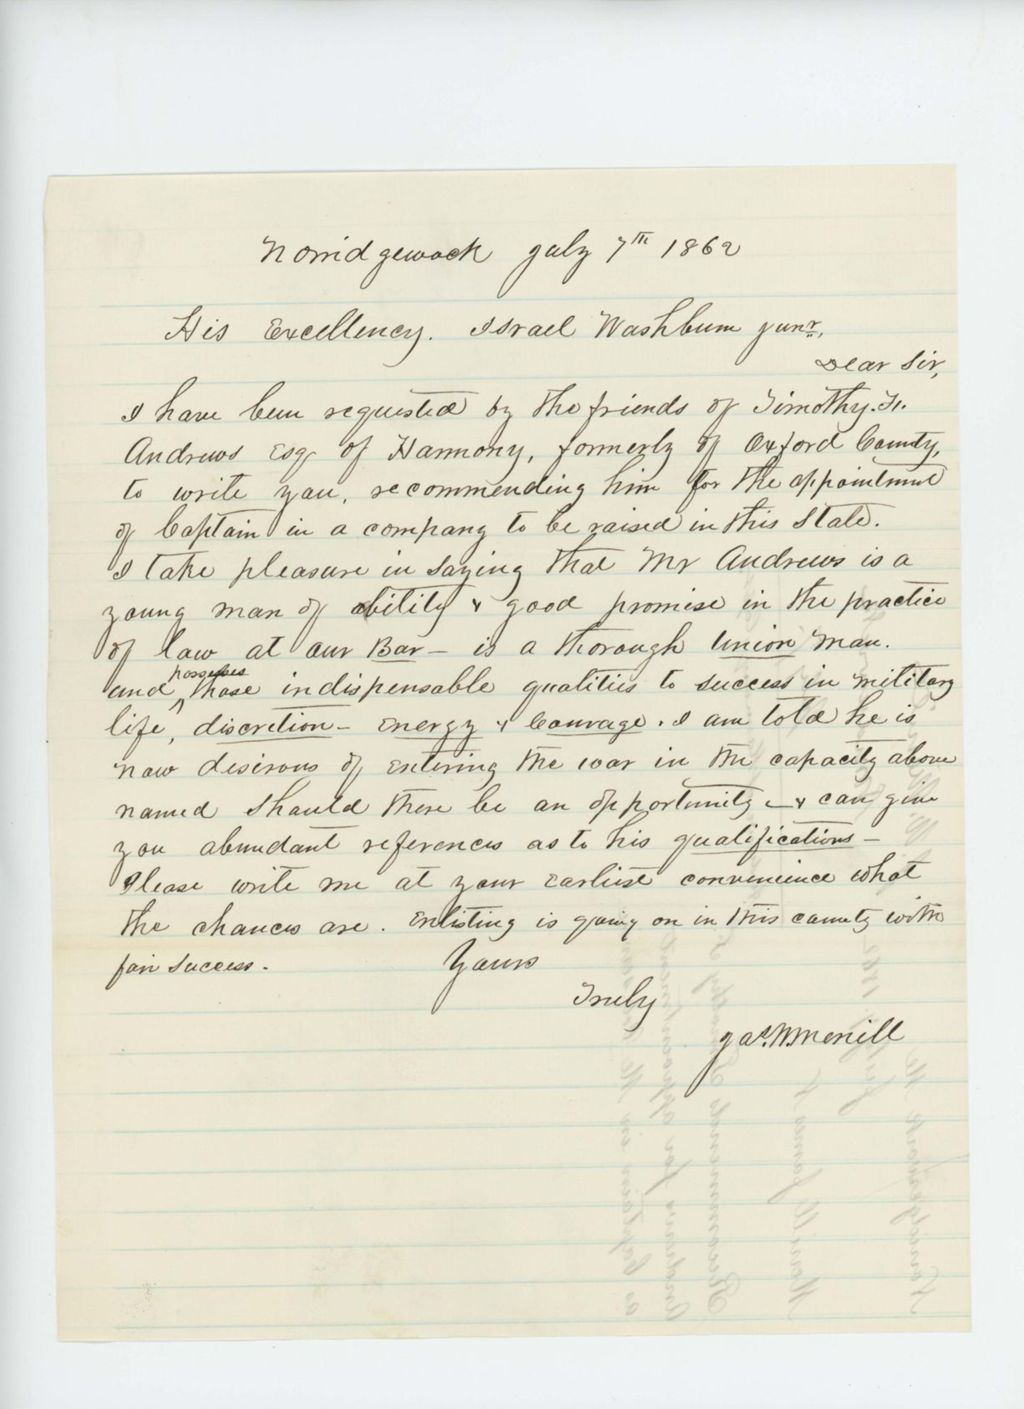 Norridgewock July 7th 1862
His Excellency. Israel Washburn junr.,
Dear Sir,
I have been requested by the friends of Timothy. F.
Andrews Esqr of Harmony, formerly of Oxford County,
to write you, recommending him for the appointment
of Captain in a company to be raised in this State.
I take pleasure in saying that Mr Andrews is a
young man of ability & good promise in the practice
of law at our Bar - is a thorough Union man.
possesses
and those indispensable qualities to success in military
life, discretion - energy & Courage. I am told he is
now desirous of entering the war in the capacity above
named should there be an opportunity - & can give
you abundant references as to his qualifications -
Please write me at your earliest convenience what
the chances are. Enlisting is going on in this county with
fair success. Yours
Truly
Jas. W. Merrill